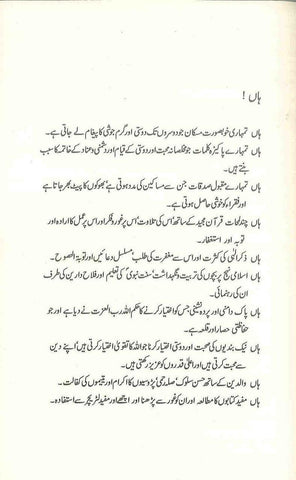 ہاں !
ہاں تمہاری خوبصورت مسکان جو دوسروں تک دوستی اور گرم جوشی کا پیغام لے جاتی ہے۔
ہاں تمہارے پاکیزہ کلمات جو مخلصانہ محبت اور دوستی کے قیام اور دشمنی و عناد کے خاتمہ کا سبب
بنتے ہیں۔
ہاں تمہارے مقبول صدقات جن سے مساکین کی مدد ہوتی ہے' بھوکوں کا پیٹ بھر جاتا ہے
اور فقراء کو خوشی حاصل ہوتی ہے۔
ہاں چند لمحات قرآن مجید کے ساتھ' اس کی تلاوت' اس پر غور و فکر اور اس پر عمل کا ارادہ اور
توبہ اور استغفار۔
ہاں ذکر الٰہی کی کثرت اور اس سے مغفرت کی طلب' مسلسل دعائیں اور توبۃ النصوح۔
ہاں اسلامی نہج پر بچوں کی تربیت و نگہداشت' سنت نبوی کی تعلیم اور فلاح دارین کی طرف
ان کی رہنمائی۔
ہاں پاک دامنی اور پردہ نشینی جس کو اختیار کرنے کا حکم اللہ رب العزت نے دیا ہے اور جو
حفاظتی حصار اور قلعہ ہے۔
ہاں نیک بندیوں کی صحبت اور دوستی اختیار کرنا جو اللہ کا تقویٰ اختیار کرتی ہیں' اپنے دین
سے محبت کرتی ہیں اور اعلیٰ قدروں کو عزیز رکھتی ہیں۔
ہاں والدین کے ساتھ حسن سلوک' صلہ رحمی' پڑوسیوں کا اکرام اور یتیموں کی کفالت۔
ہاں مفید کتابوں کا مطالعہ اور ان کو غور سے پڑھنا اور اچھے اور مفید لٹریچر سے استفادہ۔